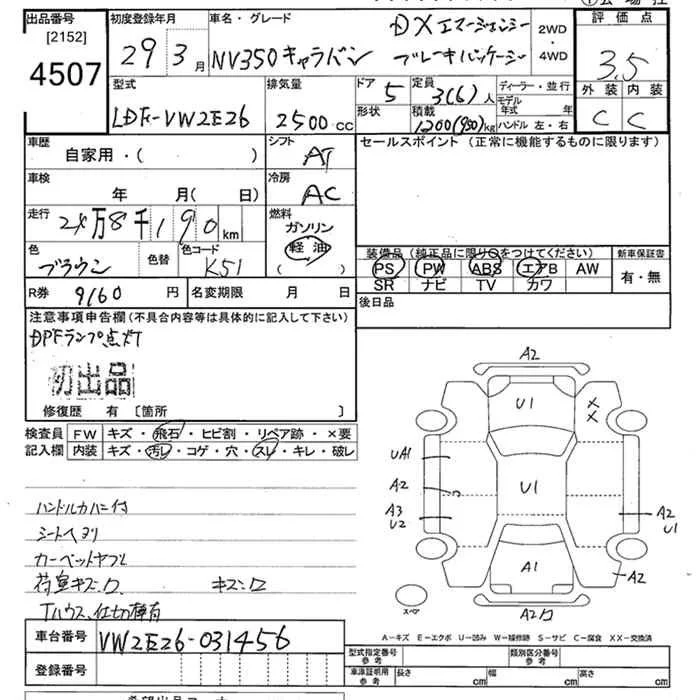 出品番号
[2152]
4507
初度登録年月
29 3月
車名・グレード
NV350キャラバン
DX エマージェンシー
ブレーキパッケージ
2WD
・
4WD
評価点
3.5
外装 内装
C C
型式
LDF-VW2E26
排気量
2500 CC
ドア 5
形状
定員 3(6)人
積載 1200(950)kg
ディーラー・並行
モデル年式 年
ハンドル 左・右
車歴
自家用・( )
シフト AT
セールスポイント(正常に機能するものに限ります)
車検
年 月( 日)
冷房 AC
走行 2×万8千190km
燃料
ガソリン
軽油
( )
色 ブラウン
色替
色コード K51
装備品(純正品に限り○をつけてください)
PS PW ABS エアB AW
SR ナビ TV カワ
新車保証書
有・無
R券 9160円
名変期限 月 日
後日品
注意事項申告欄(不具合内容等は具体的に記入して下さい)
DPFランプ点灯
初出品
修復歴 有 [箇所 ]
検査員
記入欄
FW キズ・飛石・ヒビ割・リペア跡・×要
内装 キズ・汚レ・コゲ・穴・スレ・キレ・破レ
ハンドルカバー付
シートヘタリ
荷室キズ
Tハウス、仕切棒有
A2
U1
X
X
UA1
A2
U1
A3
U2
A2
U1
A1
A2
スペア
A−キズ E−エクボ U−凹み W−補修跡 S−サビ C−腐食 XX−交換済
車台番号 VW2E26-031456
登録番号
型式指定番号
参考
類別区分番号
参考
車庫証明用
参考
長さ cm 幅 cm 高さ cm